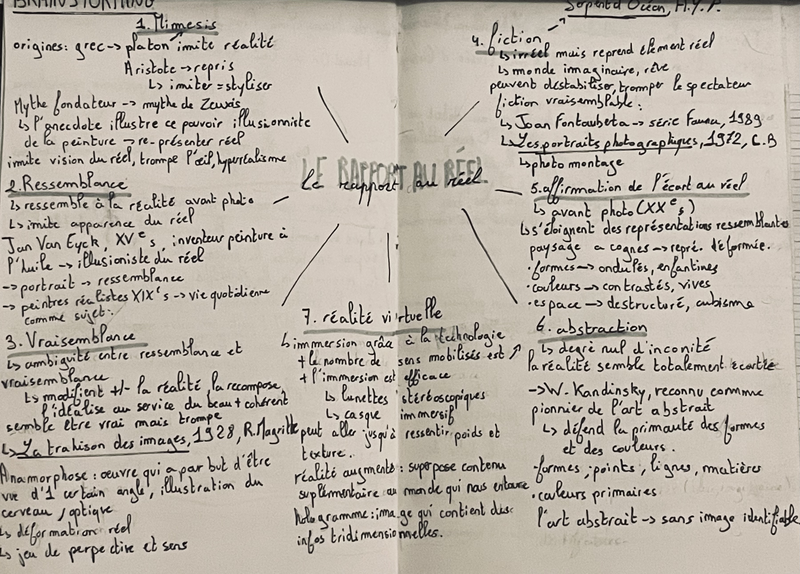 BRAINSTORMING
1. Mimesis
origines: grec -> platon imite réalité
Aristote -> repris
↳ imiter = styliser
Mythe fondateur -> mythe de Zeuxis
↳ l'anecdote illustre ce pouvoir illusionniste
de la peinture -> re-présenter réel
imite vision du réel, trompe l'œil, hyperréalisme
2. Ressemblance
↳ ressemble à la réalité avant photo
↳ imite apparence du réel
Jan Van Eyck, XVe s, inventeur peinture à
l'huile -> illusioniste du réel
-> portrait -> ressemblance
-> peintres réalistes XIXe s -> vie quotidienne
comme sujet.
3. Vraisemblance
↳ ambiguité entre ressemblance et
vraisemblance
↳ modifient +/- la réalité, la recompose,
l'idéalise au service du beau + cohérent
semble être vrai mais trompe
↳ La trahison des images, 1928, R. Magritte
Anamorphose : œuvre qui a par but d'être
vue d'1 certain angle, illustration du
cerveau, optique
↳ déformation réel
↳ jeu de perpective et sens
LE RAPPORT AU RÉEL
le rapport au réel
7. réalité virtuelle
↳ immersion grâce à la technologie
+ le nombre de sens mobilisés est ↗
+ l'immersion est efficace
↳ lunettes stéréoscopiques
↳ casque immersif
peut aller jusqu'à ressentir poids et
texture.
réalité augmenté : superpose contenu
suplémentaire au monde qui nous entoure
hologramme : image qui contient des
infos tridimensionnelles.
Serpent d'Océan, H.Y.P.
4. fiction
↳ irréel mais reprend élément réel
↳ monde imaginaire, rêve
peuvent déstabiliser, tromper le spectateur
fiction vraisemblable :
↳ Joan Fontcuberta -> série Fauna, 1989
↳ Les portraits photographiques, 1972, C.B
↳ photo montage
5. affirmation de l'écart au réel
↳ avant photo (XXe s)
↳ s'éloignent des représentations ressemblantes
paysage a cognes -> repré. déformée.
• formes -> ondulés, enfantines
• couleurs -> contrastés, vives
• espace -> destructuré, cubisme
6. abstraction
↳ degré nul d'iconité
la réalité semble totalement écartée
-> W. Kandinsky, reconnu comme
pionnier de l'art abstrait
↳ défend la primauté des formes
et des couleurs.
• formes, points, lignes, matières
• couleurs primaires
l'art abstrait -> sans image identifiable